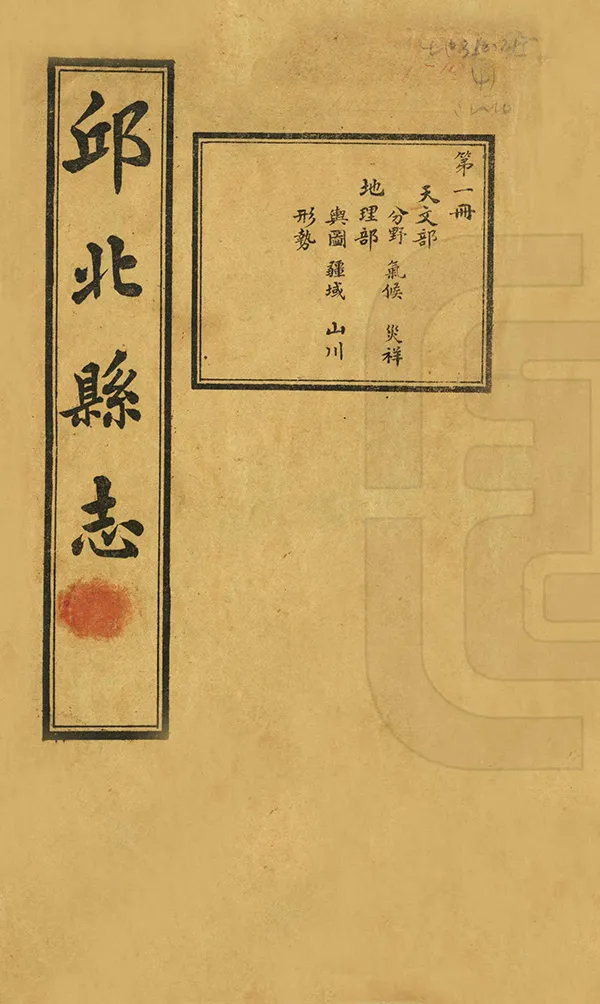 邱北縣志
第一冊
天文部
分野 氣候 災祥
地理部
輿圖 疆域 山川
形勢